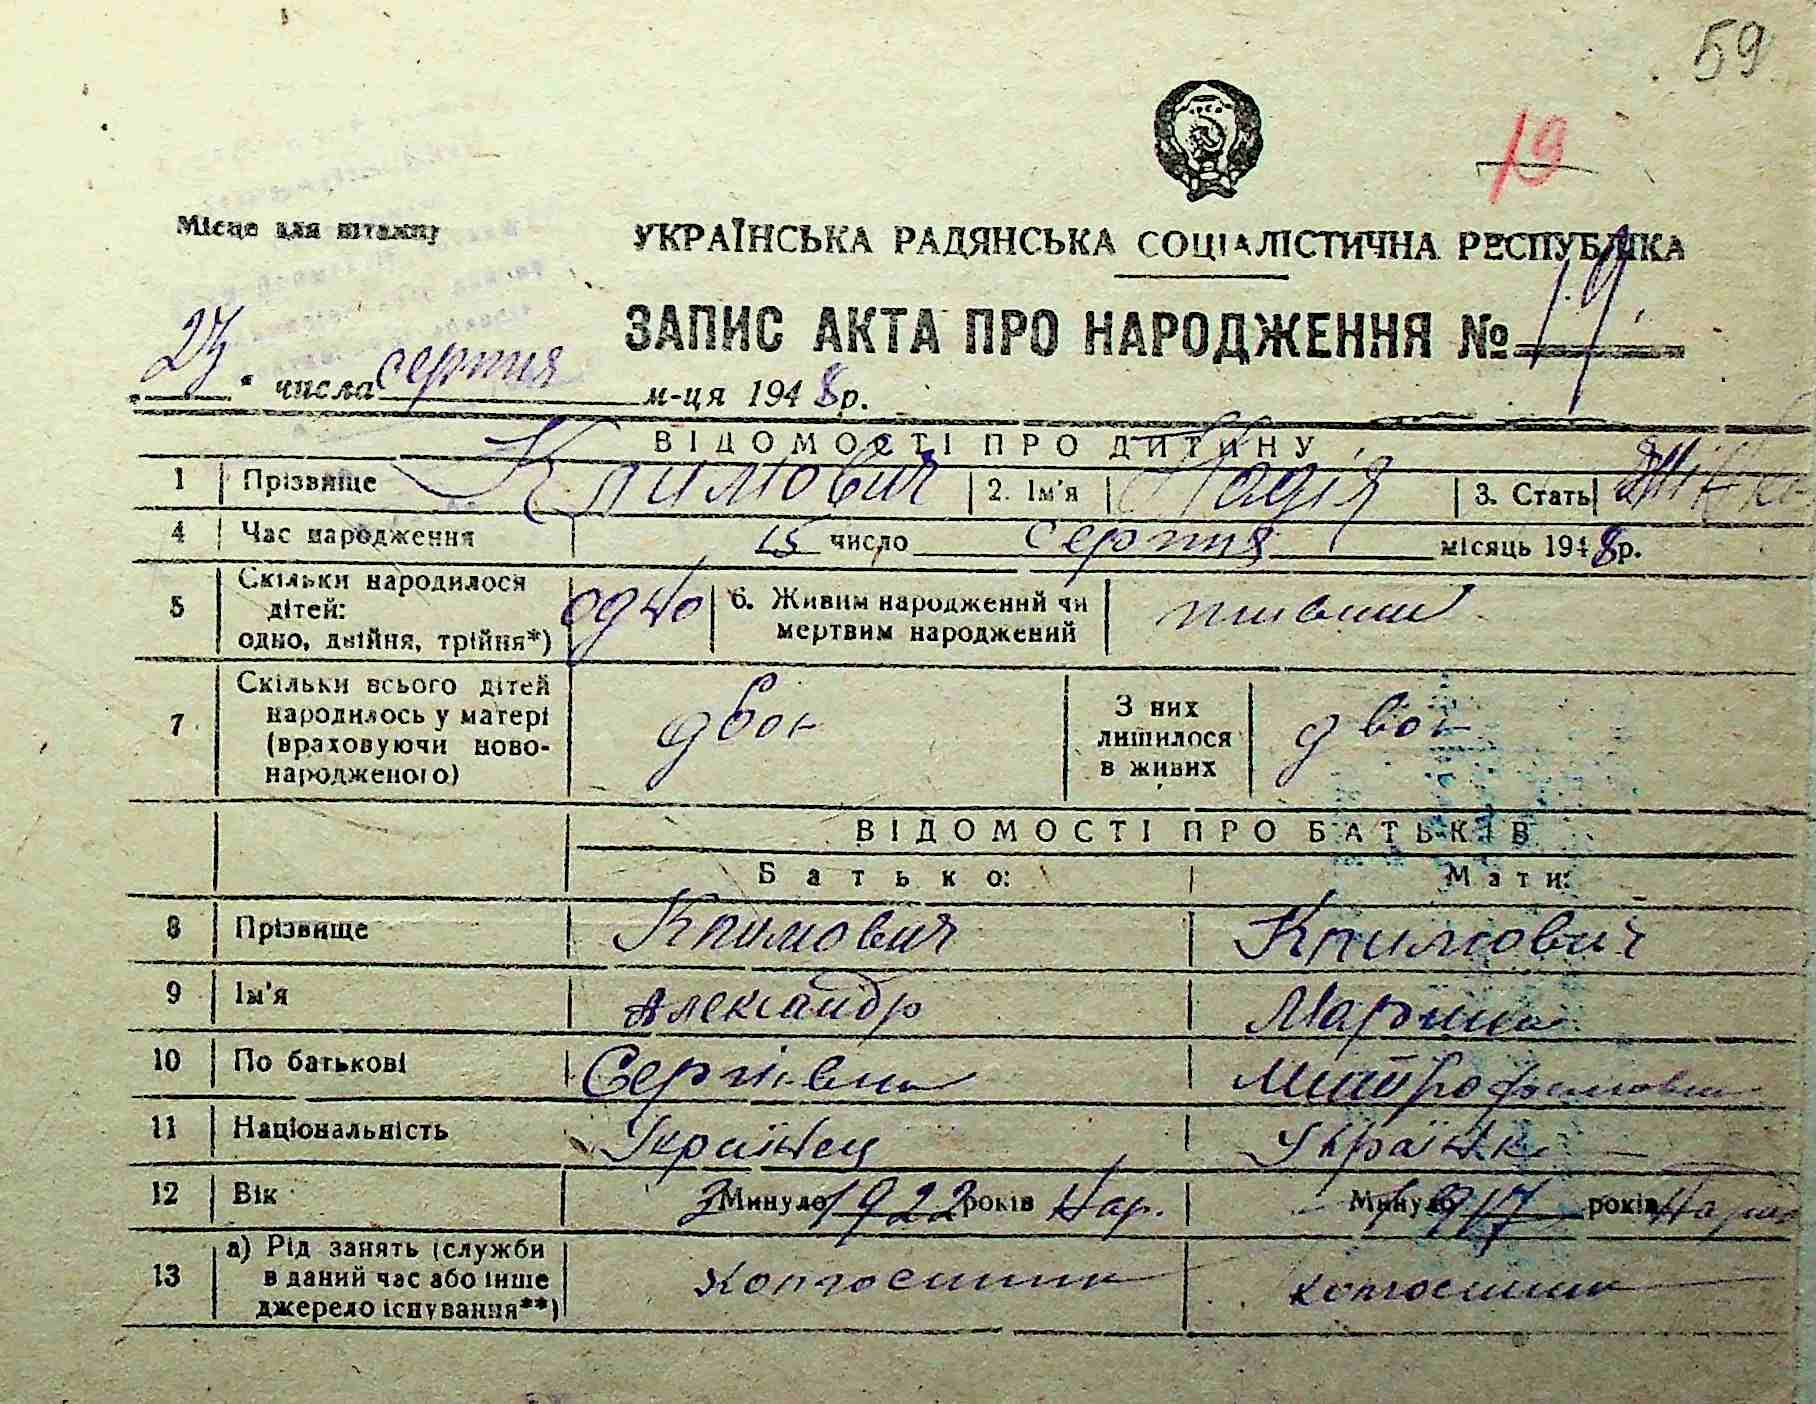 59
19
Місце для штампу
УКРАЇНСЬКА РАДЯНСЬКА СОЦІАЛІСТИЧНА РЕСПУБЛІКА
ЗАПИС АКТА ПРО НАРОДЖЕННЯ № 19.
23 числа серпня м-ця 1948 р.
ВІДОМОСТІ ПРО ДИТИНУ
1 Прізвище Климович 2. Ім'я Надія 3. Стать
4 Час народження 15 число серпня місяць 1948 р.
5 Скільки народилося дітей: одно, двійня, трійня*) одно 6. Живим народжений чи мертвим народжений живим
7 Скільки всього дітей народилось у матері (враховуючи новонародженого) двоє З них лишилося в живих двоє
ВІДОМОСТІ ПРО БАТЬКІВ
Батько: Мати:
8 Прізвище Климович Климович
9 Ім'я Александр
10 По батькові
11 Національність Українец Українка
12 Вік З Минуло 1922 років нар. Минуло 1917 років
13 а) Рід занять (служби в даний час або інше джерело існування**) колгоспник